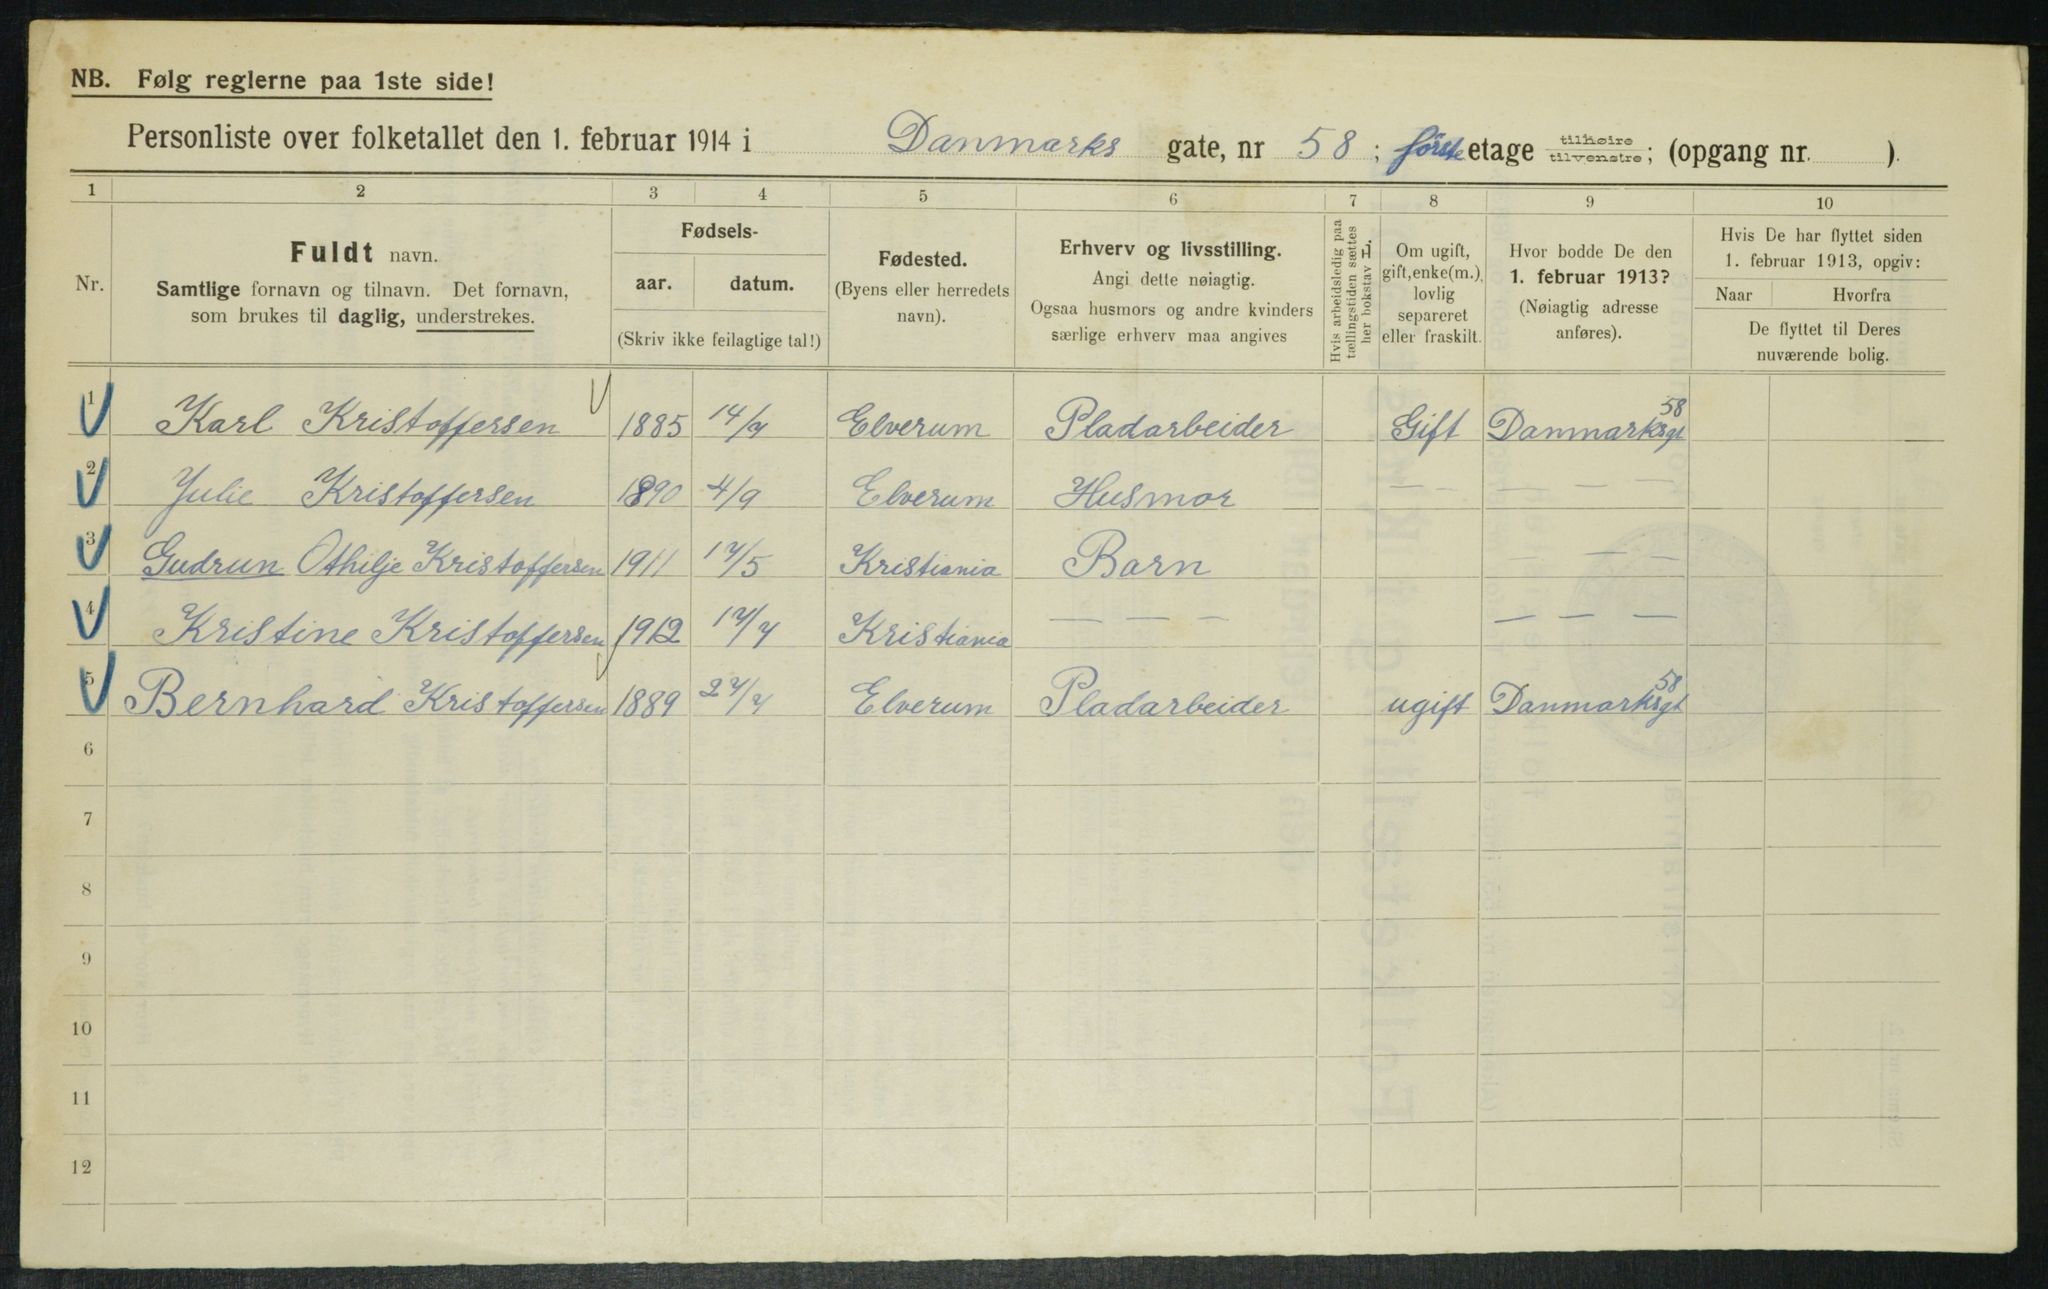 NB. Følg reglerne paa 1ste side!
Personliste over folketallet den 1. februar 1914 i Danmarks gate, nr 58 ; første etage tilhøire tilvenstre; (opgang nr. ).
1 2 3 4 5 6 7 8 9 10
Nr.
Fuldt navn.
Samtlige fornavn og tilnavn. Det fornavn,
som brukes til daglig, understrekes.
Fødsels-
aar. datum.
(Skriv ikke feilagtige tal!)
Fødested.
(Byens eller herredets
navn).
Erhverv og livsstilling.
Angi dette nøiagtig.
Ogsaa husmors og andre kvinders
særlige erhverv maa angives
Hvis arbeidsledig paa
tællingstiden sættes
her bokstav L.
Om ugift,
gift, enke(m.),
lovlig
separeret
eller fraskilt.
Hvor bodde De den
1. februar 1913?
(Nøiagtig adresse
anføres).
Hvis De har flyttet siden
1. februar 1913, opgiv:
Naar Hvorfra
De flyttet til Deres
nuværende bolig.
1 Karl Kristoffersen 1885 14/9 Elverum Pladarbeider Gift Danmarksgt 58
2 Julie Kristoffersen 1890 4/9 Elverum Husmor — — — — —
3 Gudrun Othilje Kristoffersen 1911 17/5 Kristiania Barn — — —
4 Kristine Kristoffersen 1912 17/7 Kristiania — — — — — —
5 Bernhard Kristoffersen 1889 27/7 Elverum Pladarbeider ugift Danmarksgt 58
6
7
8
9
10
11
12